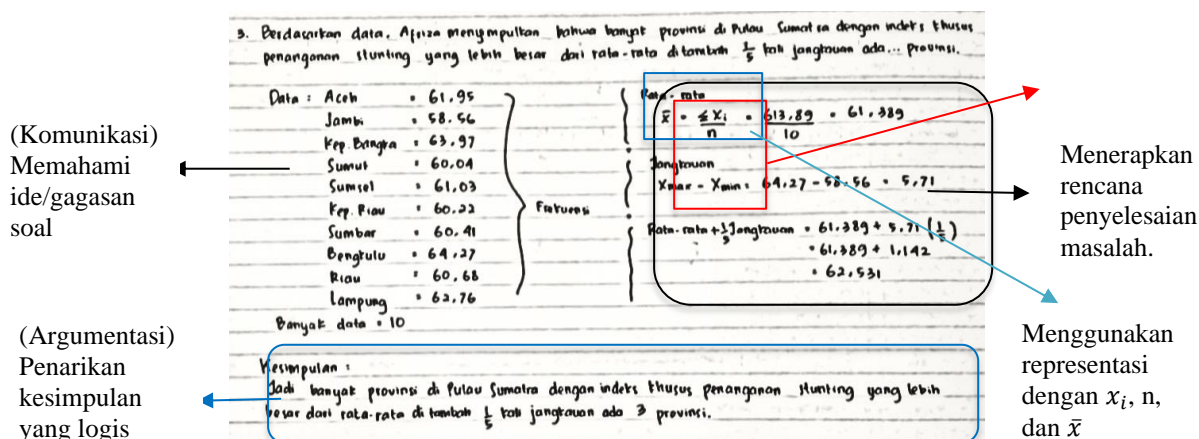 3. Berdasarkan data, Afriza menyimpulkan bahwa banyak provinsi di Pulau Sumatra dengan indeks khusus
penanganan stunting yang lebih besar dari rata-rata ditambah 1/5 kali jangkauan ada... provinsi.
Data : Aceh = 61.95
Jambi = 58.56
Kep. Bangka = 63.97
Sumut = 60.04
Sumsel = 61.03
Kep. Riau = 60.22
Sumbar = 60.41
Bengkulu = 64.27
Riau = 60.68
Lampung = 62.76
Banyak data = 10
Frekuensi
Rata-rata
x̄ = ≤xi/n = 613.89/10 = 61.389
Jangkauan
Xmax - Xmin = 64.27 - 58.56 = 5.71
Rata-rata + 1/5 Jangkauan = 61.389 + 5.71 (1/5)
= 61.389 + 1.142
= 62.531
Kesimpulan :
Jadi banyak provinsi di Pulau Sumatra dengan indeks khusus penanganan stunting yang lebih
besar dari rata-rata di tambah 1/5 kali jangkauan ada 3 provinsi.
(Komunikasi)
Memahami
ide/gagasan
soal
(Argumentasi)
Penarikan
kesimpulan
yang logis
Menerapkan
rencana
penyelesaian
masalah.
Menggunakan
representasi
dengan xᵢ, n,
dan x̄